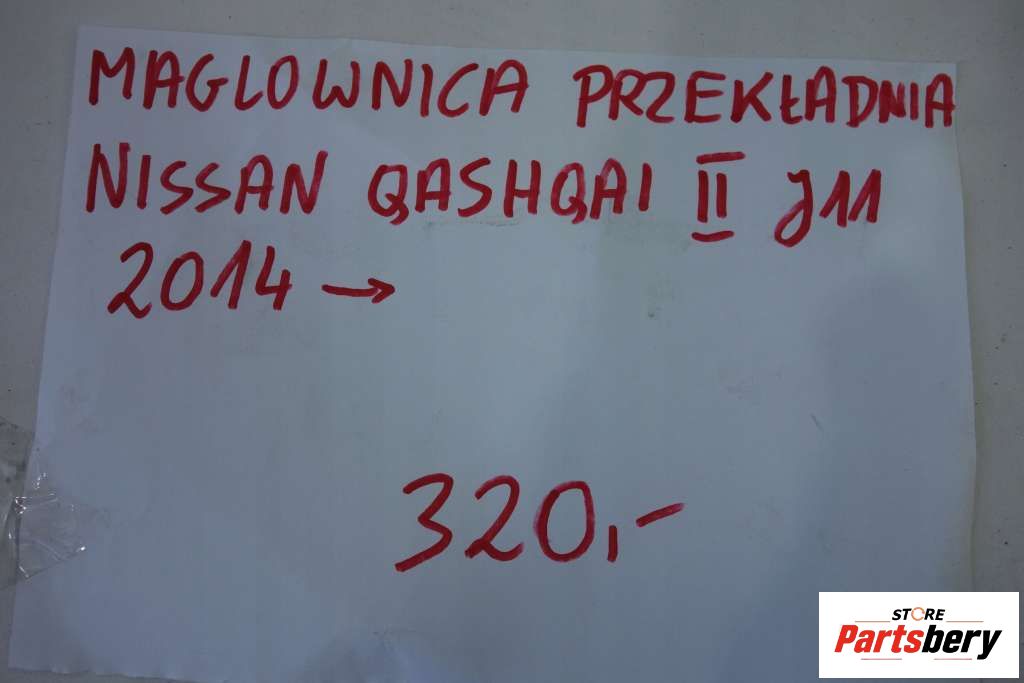 MAGLOWNICA PRZEKŁADNIA
NISSAN QASHQAI II J11
2014 →
320,-
STORE
Partsbery